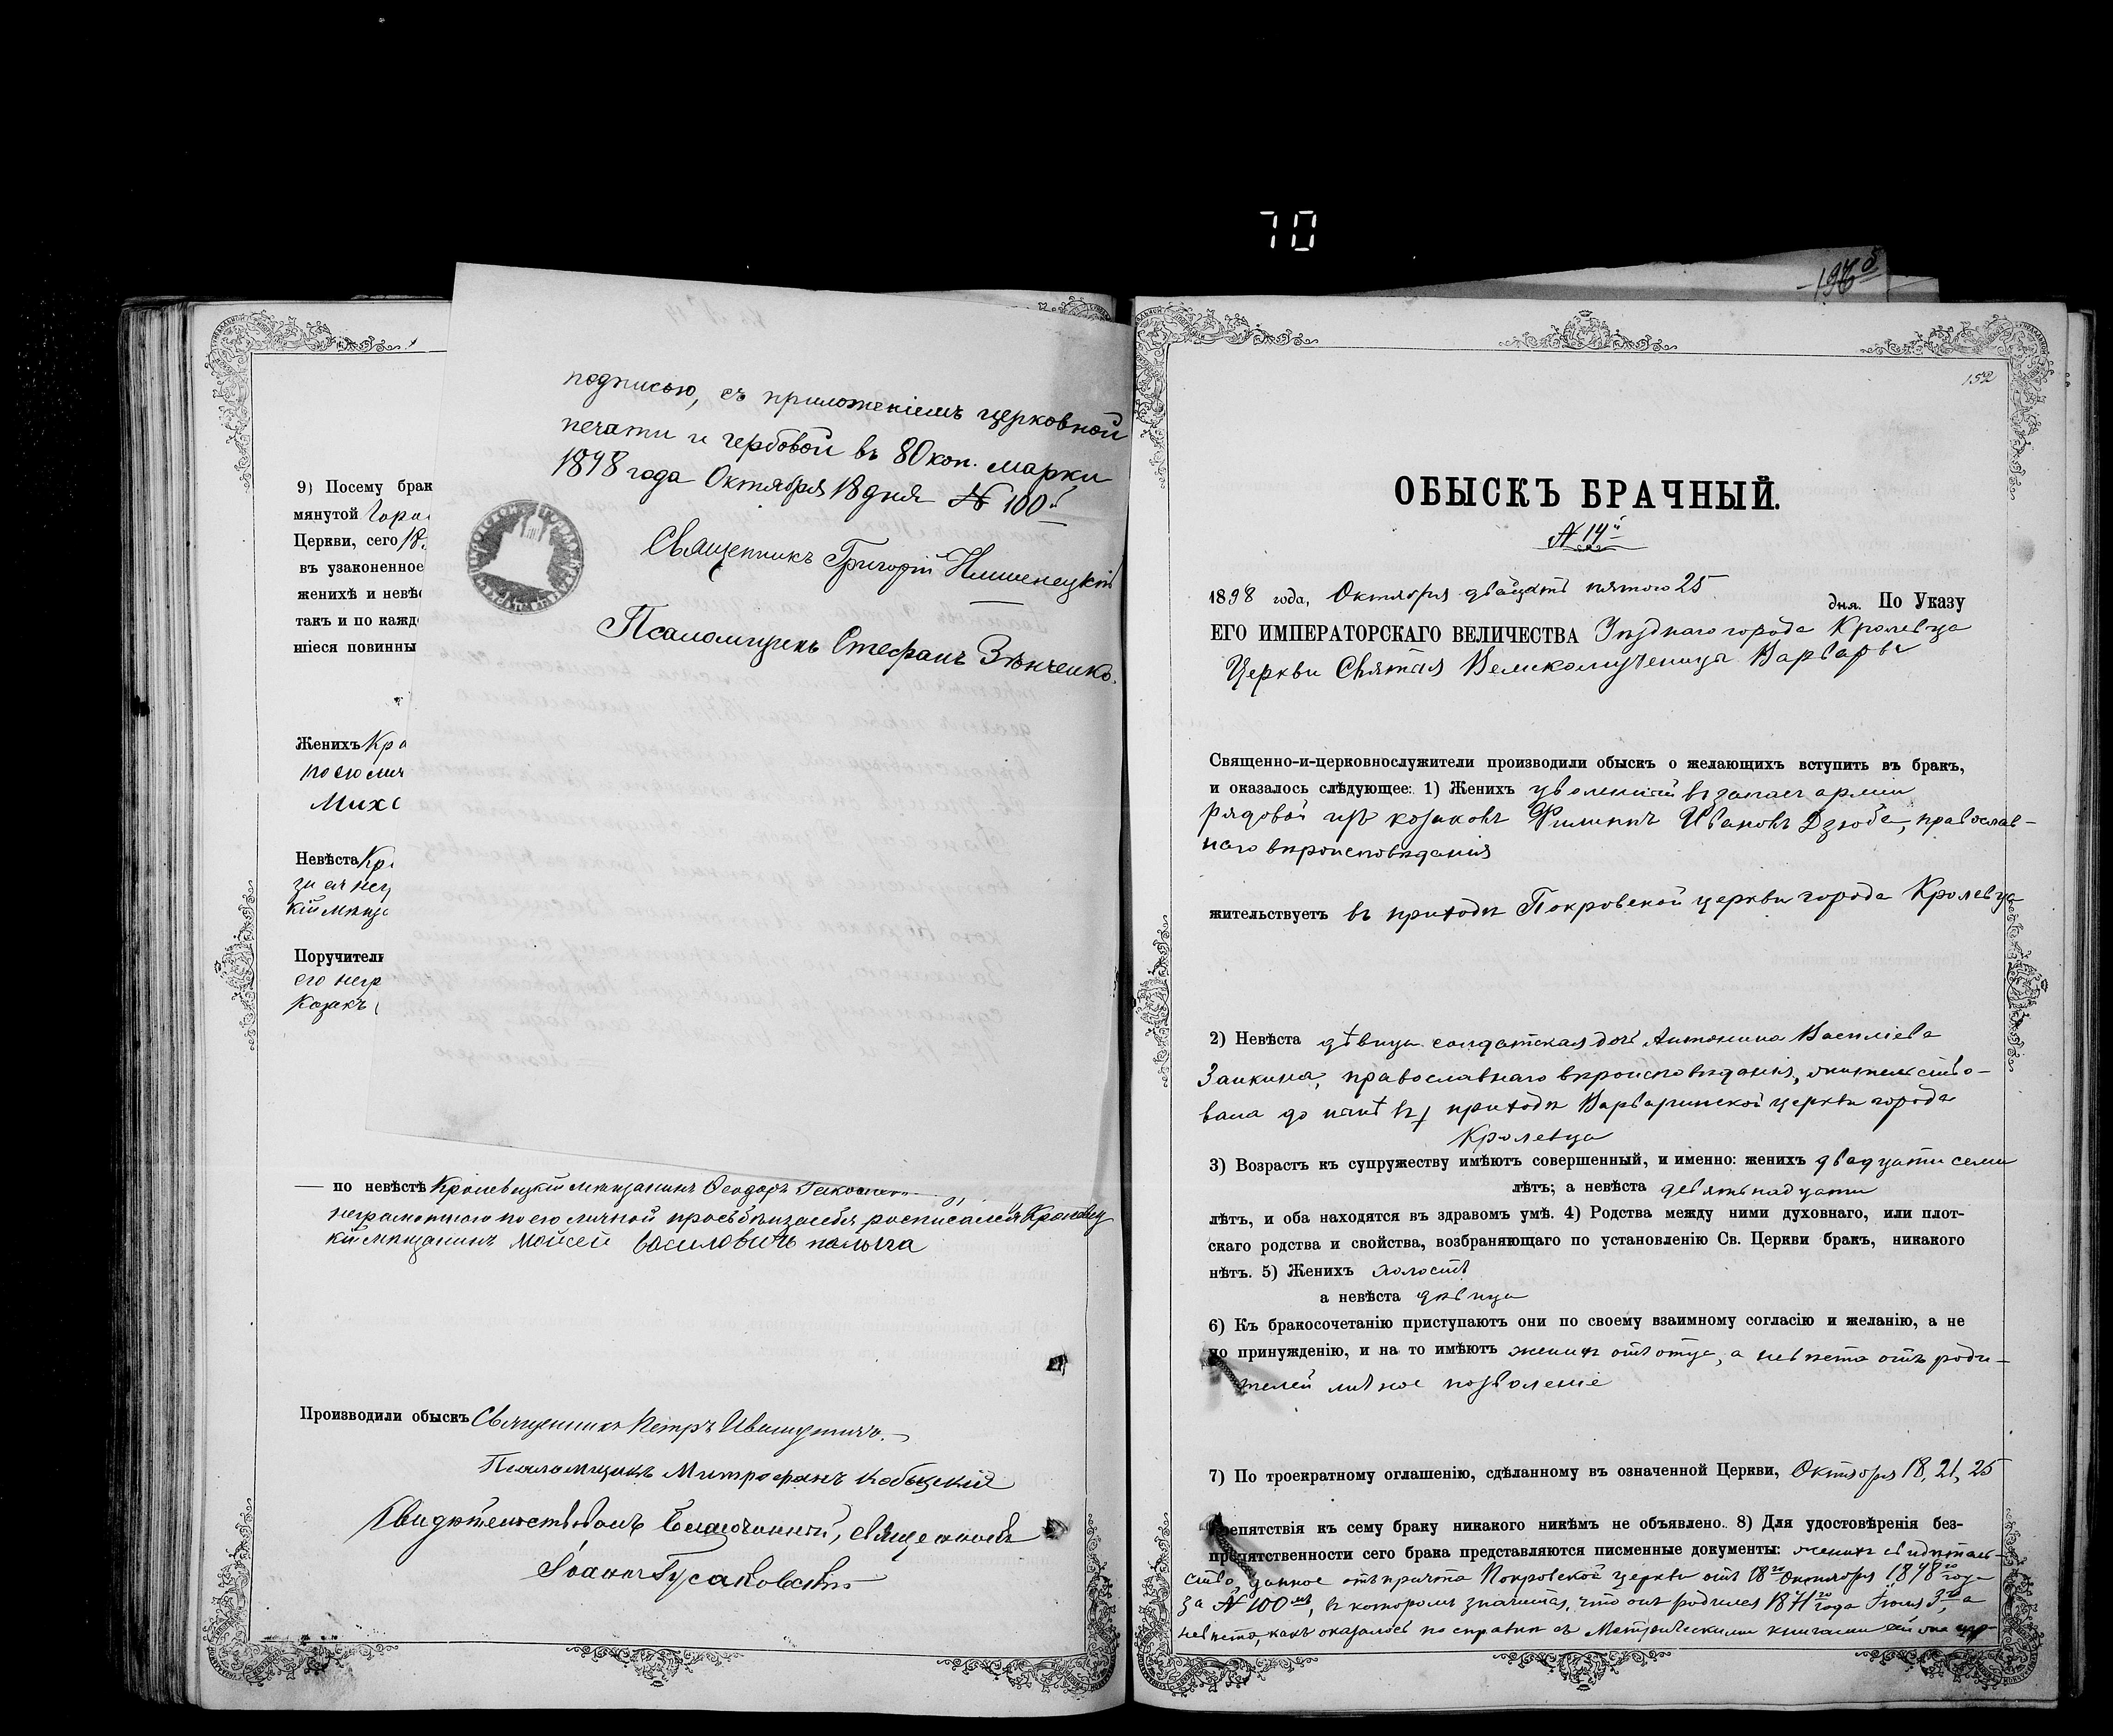 70
подписью, съ приложеніемъ церковной
печати и гербовой въ 80 коп. марки
1898 года Октября 18 дня № 100й
Священникъ Григорій
Псаломщикъ Стефанъ Зѣнченко.
9) Посему брак
мянутой Горо
Церкви, сего 18
въ узаконенное
женихѣ и невѣс
такъ и по каждо
шіеся повинны
Женихъ Кро
по его лич
Михо
Невѣста Кр
за ея нег
кій мѣща
Поручител
его негр
Козакъ
по невѣстѣ Кролевецкій мѣщанинъ Ѳеодоръ
неграмотною по его личной просьбѣ и за себя росписался Кролевец
кій мѣщанинъ Мойсей василовичъ
Производили обыскъ Священникъ Петръ
Псаломщикъ Митрофанъ
Свидѣтельствовалъ Благочинный, священникъ
Іоаннъ Гусаковскій
152
ОБЫСКЪ БРАЧНЫЙ.
№ 14й
1898 года, Октября двадцать пятого 25 дня. По Указу
ЕГО ИМПЕРАТОРСКАГО ВЕЛИЧЕСТВА Уѣзднаго города Кролевца
Церкви Святыя Великомученицы Варвары
Священно-и-церковнослужители производили обыскъ о желающихъ вступить въ бракъ,
и оказалось слѣдующее: 1) Женихъ уволенный въ запасъ арміи
рядовой изъ козаковъ Филиппъ Ивановъ Дзюба, православ-
наго вѣроисповѣданія
жительствуетъ въ приходѣ Покровской церкви города Кролевца
2) Невѣста дѣвица солдатская дочь Антонина Василіева
Заикина, православнаго вѣроисповѣданія, жительство-
вала до нынѣ въ приходѣ Варваринской церкви города
Кролевца
3) Возрастъ къ супружеству имѣютъ совершенный, и именно: женихъ двадцати семи
лѣтъ; а невѣста девятнадцати
лѣтъ, и оба находятся въ здравомъ умѣ. 4) Родства между ними духовнаго, или плот-
скаго родства и свойства, возбраняющаго по установленію Св. Церкви бракъ, никакого
нѣтъ. 5) Женихъ холостъ
а невѣста дѣвица
6) Къ бракосочетанію приступаютъ они по своему взаимному согласію и желанію, а не
по принужденію, и на то имѣютъ женихъ отъ отца, а невѣста отъ роди-
телей личное позволеніе
7) По троекратному оглашенію, сдѣланному въ означенной Церкви, Октября 18, 21, 25
препятствія къ сему браку никакого никѣмъ не объявлено. 8) Для удостовѣренія без-
препятственности сего брака представляются писменные документы: женихъ свидѣтель-
ство, данное отъ причта Покровской церкви отъ 18го Октября 1898го года
за № 100мъ, въ которомъ значится, что онъ родился 1871го года Іюля 3го, а
невѣста, какъ оказалось по справкѣ съ Метрическими книгами